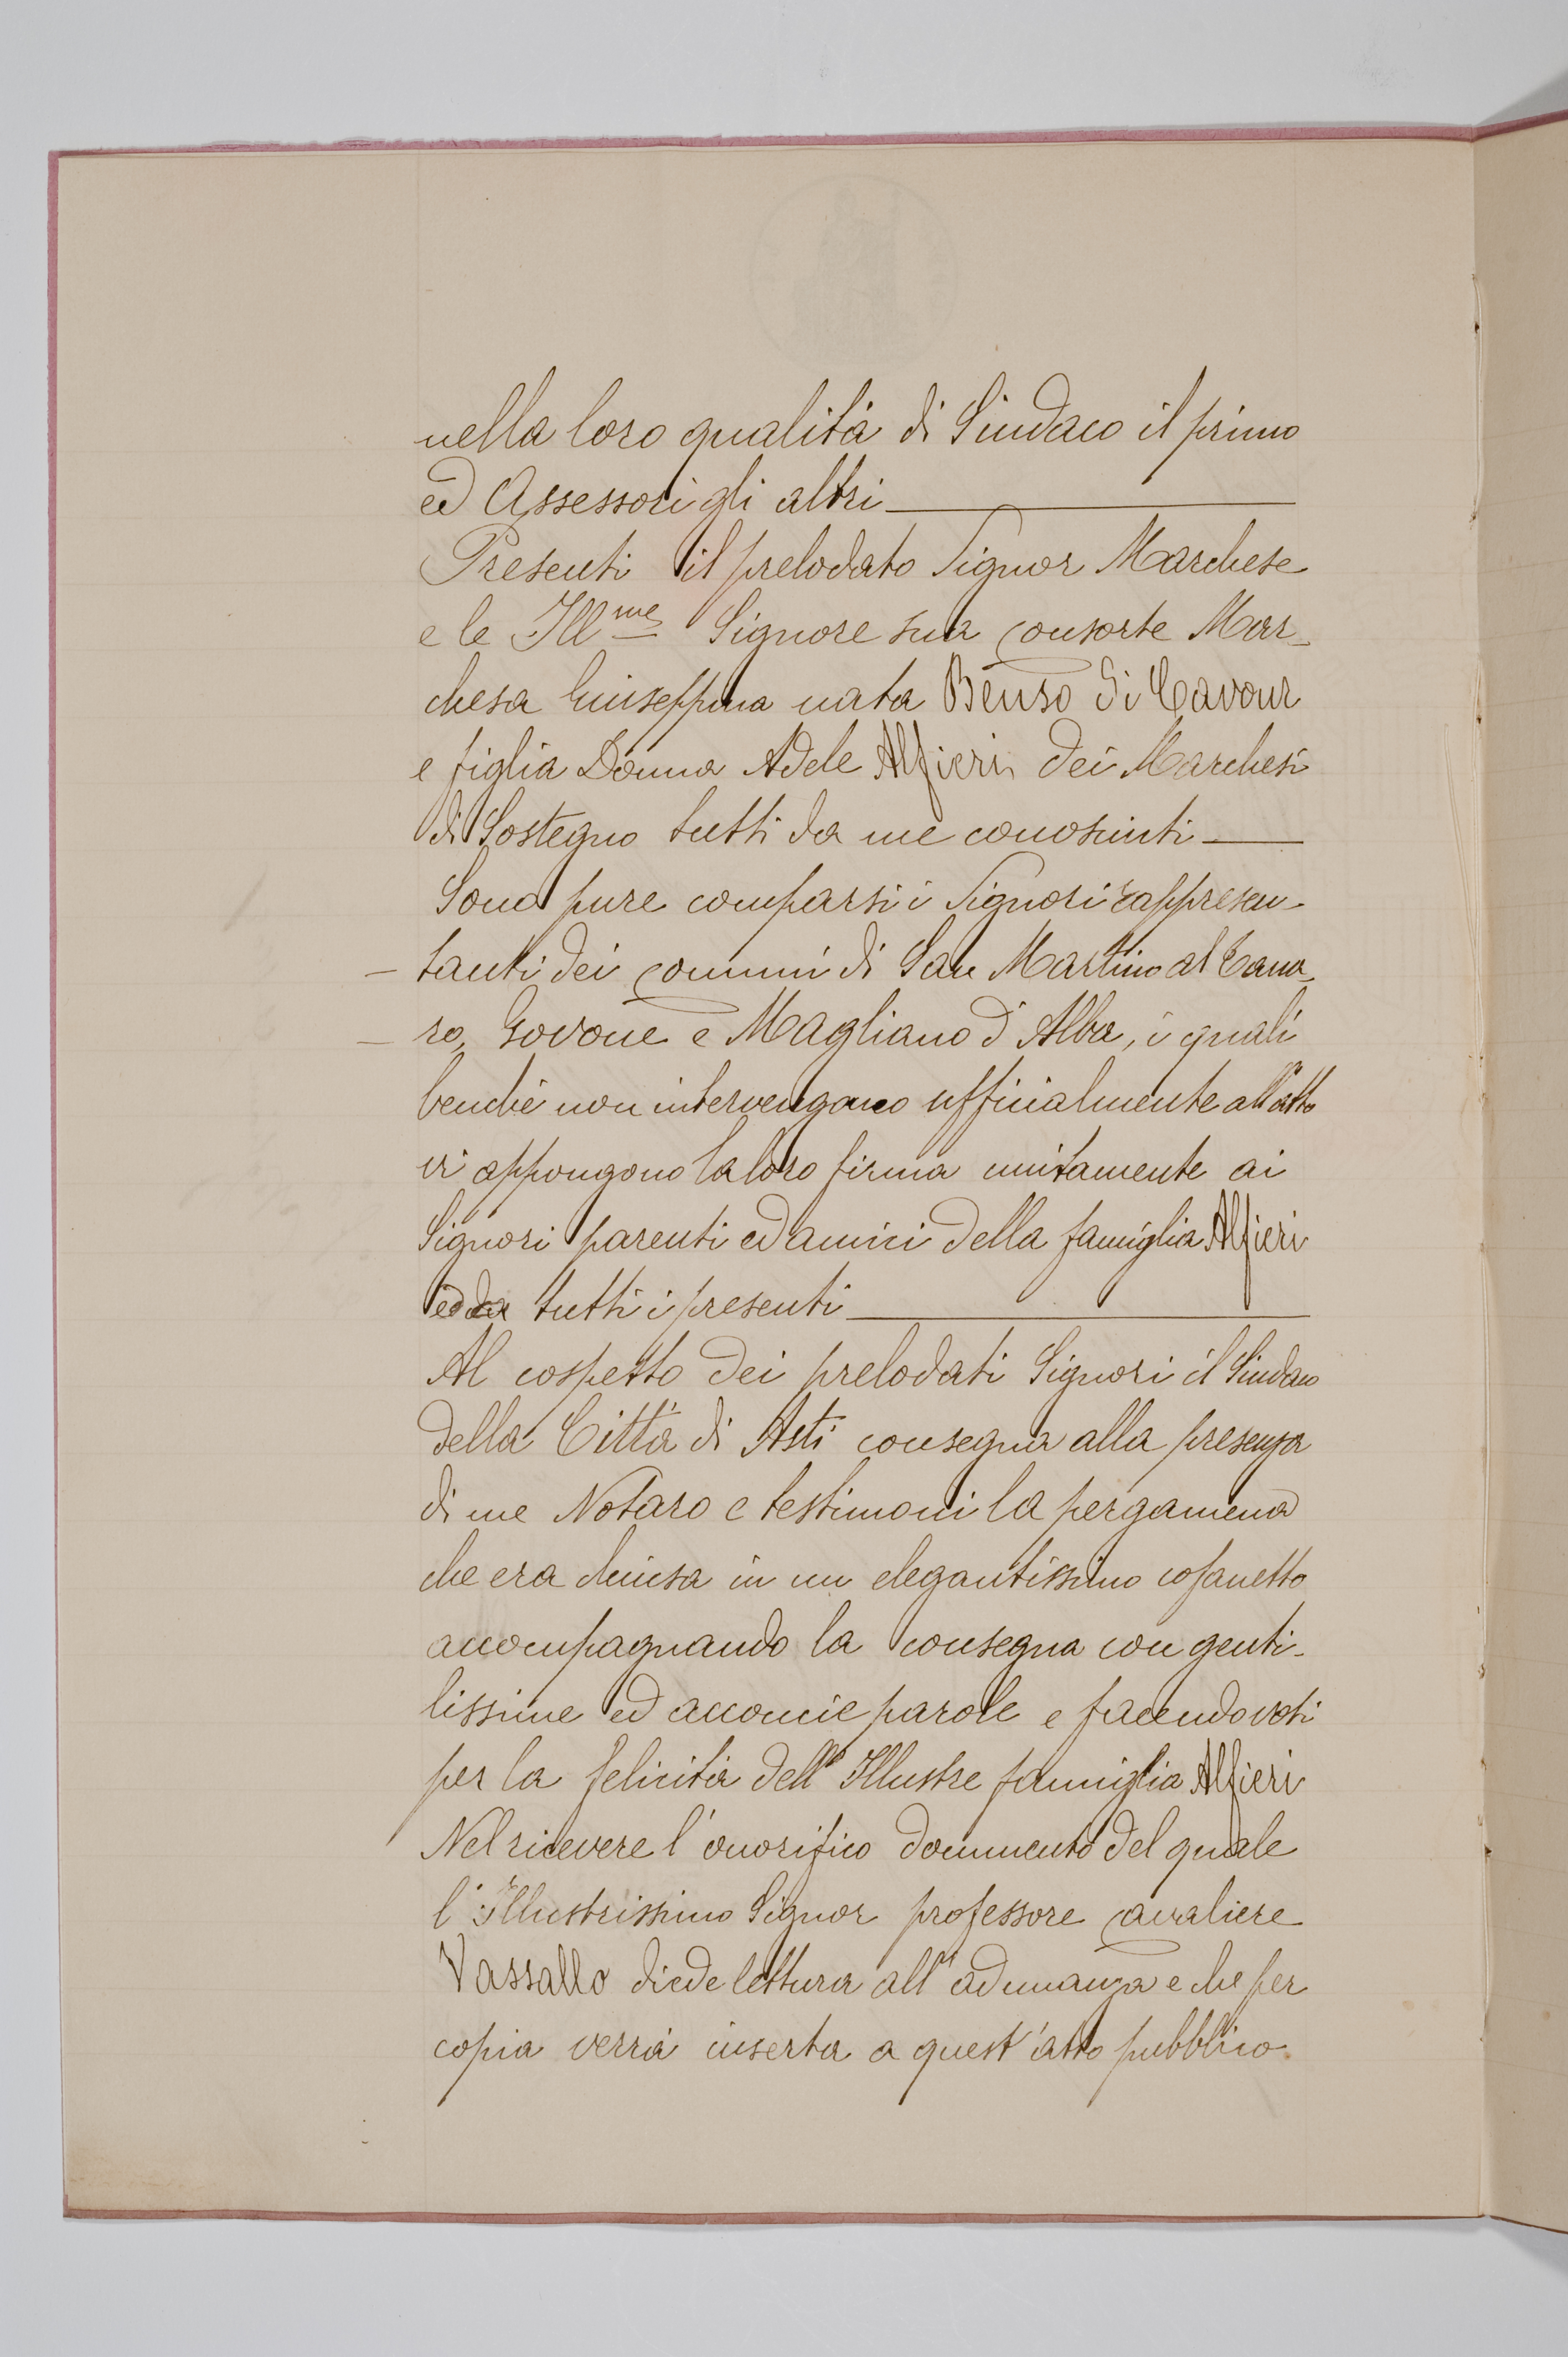 nella loro qualità di Sindaco il primo
ed Assessori gli altri
Presenti il prelodato Signor Marchese
e le Ill.me Signore sua consorte Mar-
chesa Giuseppina nata Benso di Cavour
e figlia Donna Adele Alfieri dei Marchesi
di Sostegno tutti da me conosciuti
Sono pure comparsi i Signori rappresen-
- tanti dei comuni di San Martino al Tana-
- ro, Govone e Magliano d'Alba, i quali
benchè non intervengano ufficialmente all'atto
vi appongono la loro firma unitamente ai
Signori parenti ed amici della famiglia Alfieri
ed a tutti i presenti
Al cospetto dei prelodati Signori il Sindaco
della Città di Asti consegna alla presenza
di me Notaro e testimoni la pergamena
che era chiusa in un elegantissimo cofanetto
accompagnando la consegna con genti-
lissime ed acconcie parole e facendo voti
per la felicità dell'Illustre famiglia Alfieri
Nel ricevere l'onorifico documento del quale
l'Illustrissimo Signor professore cavaliere
Vassallo diede lettura all'adunanza e che per
copia verrà inserta a quest'atto pubblico.